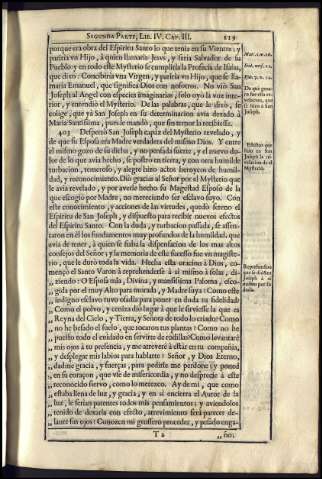 SEGUNDA PARTE, LIB. IV. CAP. III.
porque era obra del Espiritu Santo lo que tenia en su Vientre: y
pariria vn Hijo, à quien llamaria Jesvs, y seria Salvador de su
Pueblo: y en todo este Mysterio se cumpliria la Profecia de Isaias,
que dixo: Concibirà vna Virgen, y parirà vn Hijo, que se llamaria
Emanuel, que significa Dios con nosotros. No viò San
Joseph al Angel con especies imaginarias, solo oyò la voz interior,
y entendiò el Mysterio. De las palabras, que le
colige, que yà San Joseph en su determinacion avia dexado à
Maria Santissima, pues le mandò, que sin temor la recibiesse.
403 Despertò San Joseph capaz del Mysterio revelado, y
de que su Esposa era Madre verdadera del mismo Dios. Y entre
el mismo gozo de su dicha, y no pensada suerte, y el nuevo dolor
de lo que avia hecho, se postrò en tierra, y con otra humilde turbacion,
temeroso, y alegre hizo actos heroycos de humildad,
y reconocimiento. Diò gracias al Señor por el Mysterio que
le avia revelado, y por averle hecho su Magestad Esposo de la
que escogiò por Madre, no mereciendo ser esclavo suyo. Con
este conocimiento, y acciones de las virtudes, quedò sereno el
Espiritu de San Joseph, y dispuesto para recibir nuevos efectos
del Espiritu Santo. Con la duda, y turbacion passada, se assentaron
en èl los fundamentos muy profundos de la humildad, que
avia de tener, à quien se fiaba la dispensacion de los mas altos
consejos del Señor: y la memoria de este sucesso fue vn magisterio,
que le durò toda la vida. Hecha esta oracion à Dios, començò
el Santo Varon à reprehenderse à sì mismo à solas, diziendo:
O Esposa mia, Divina, y mansissima Paloma, escogida
por el muy Alto para morada, y Madre suya: Como este
indigno esclavo tuvo osadia para poner en duda tu fidelidad?
Como el polvo, y ceniza diò lugar à que le sirviesse la que es
Reyna del Cielo, y Tierra, y Señora de todo lo criado? Como
no he besado el suelo, que tocaron tus plantas? Como no he
puesto todo el cuidado en servirte de rodillas? Como levantarè
mis ojos à tu presencia, y me atreverè à estàr en tu compañia,
y desplegar mis labios para hablarte? Señor, y Dios Eterno,
dadme gracia, y fuerças, para pedirle me perdone; y poned
en su coraçon, que vse de misericordia, y no desprecie à este
reconocido siervo, como lo merezco. Ay de mì, que como
estaba llena de luz, y gracia, y en sì encierra el Autor de la
luz, le serian patentes todos mis pensamientos; y aviendolos
tenido de dexarla con efecto, atrevimiento serà parecer delante
sus ojos! Conozco mi grossero proceder, y pesado enga-
T 2
ño,